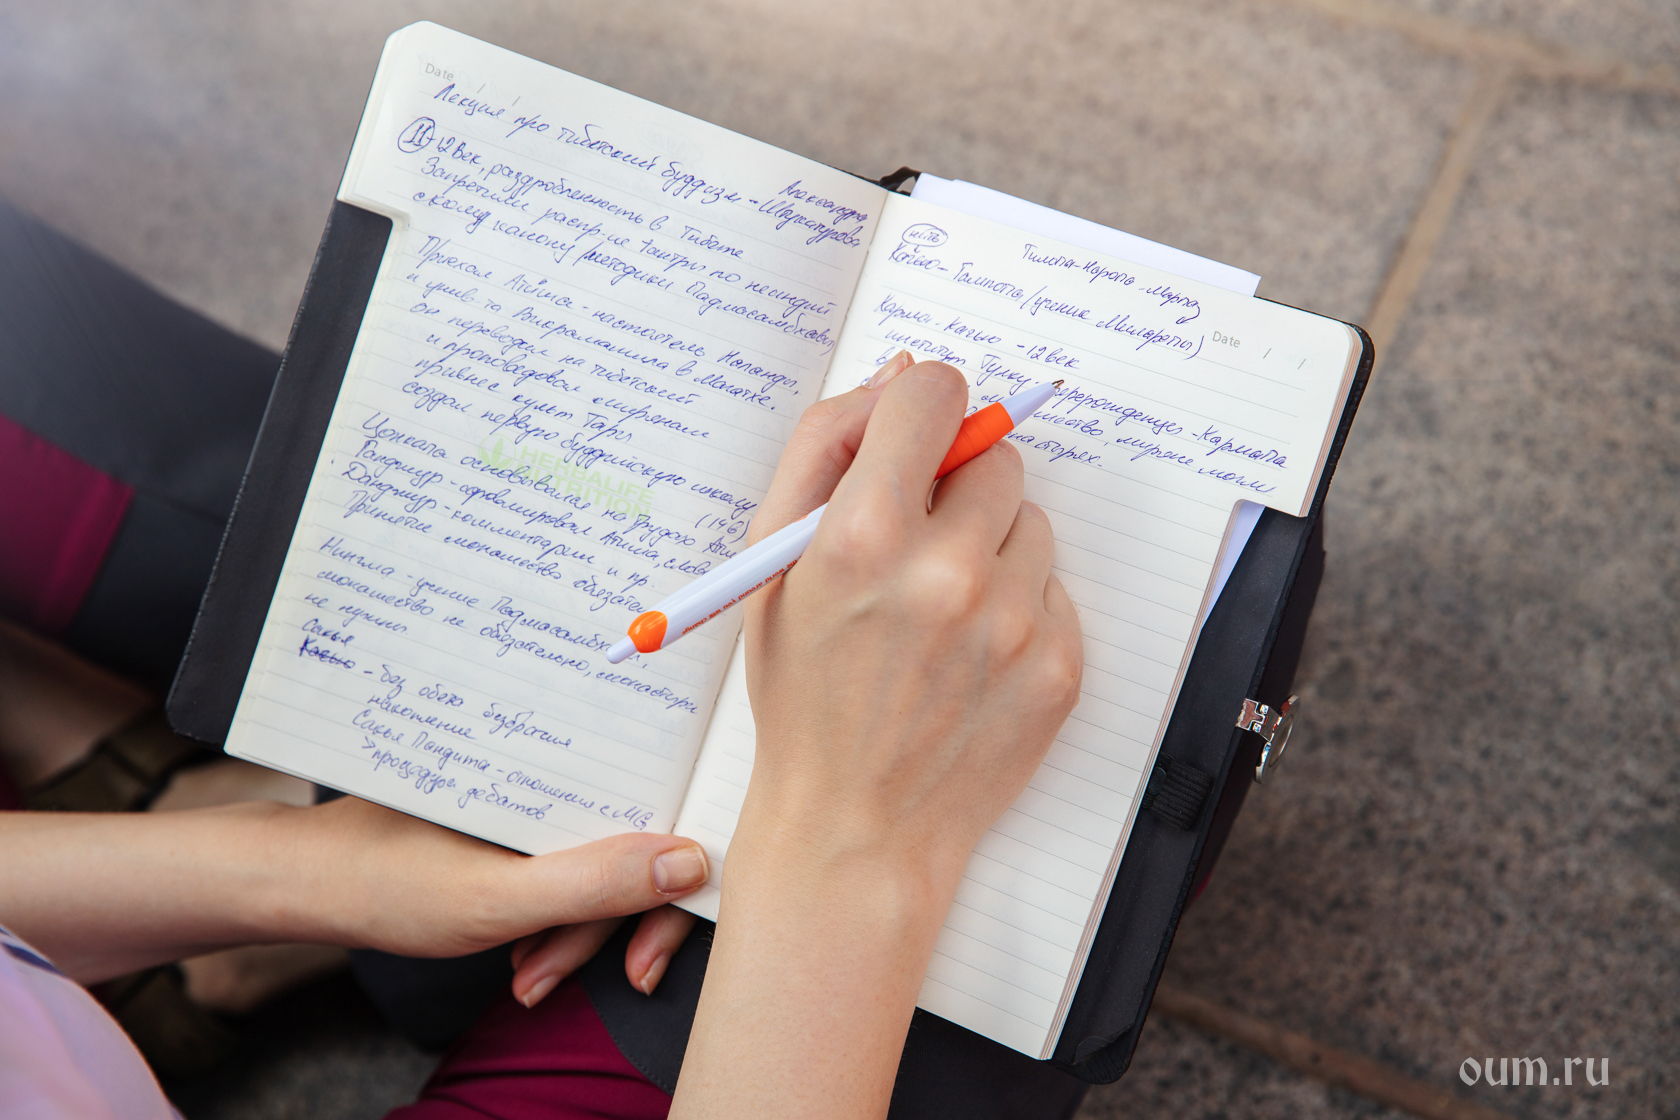 Date
Лекция про тибетский буддизм - Александра
Шакатурова
11 - 12 век, раздробленность в Тибете
Запретили распр-ие тантры по неиндий
скому канону / методики Падмасамбхавы
Приехал Атиша - настоятель Наланды,
и унив-та Викрамашила в Магатхе.
он переводил на тибетский
и проповедовал
привнес культ Тары
создал первую буддийскую школу
Цонкапа основывался на трудах Атиши
(14 в)
Ганджур - сформировал Атиша, слова
Данджур - комментарии и пр.
Принятие монашество обязател
Нингма - учение Падмасамбхавы,
монашество не обязательно, монастыри
не нужны.
Сакья
Кагью - без обета безбрачия
накопление
Сакья Пандита - отношения с
> процедура дебатов
HERBALIFE
NUTRITION
нить
Тилопа - Наропа - Марпа
Кагью - Гампопа / (ученик Миларепы)
Date / /
Карма-Кагью - 12 век
институт Тулку, перерожденцы - Кармапа
миряне могли
монастырях.
oum.ru